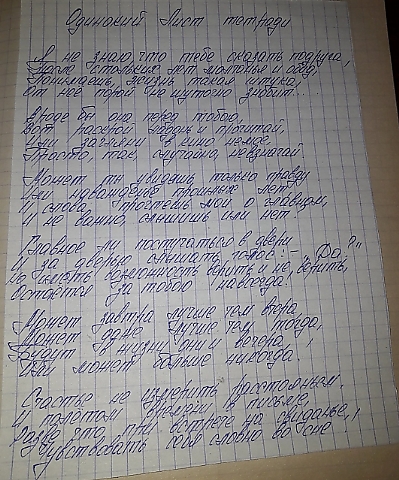 Одинокий Лист тетради
Я не знаю что тебе сказать подруга,
После стольких лет молчанья и обид,
жизнь такая штука,
От неё порой не шуточно знобит....
Вроде бы она перед тобою,
Вот раскрой ладонь и прочитай,
Или загляни в окно немое
Просто, так, случайно, невзначай.
Может ты увидишь только правду
Или прошлых лет
И слова прочтёшь мои о главном,
И не важно, слышишь или нет.
Главное ли постучаться в двери
И за дверью слышать голос: - „Да?"
Но иметь возможность верить и не верить,
Остаётся за тобою навсегда!
Может завтра лучше чем вчера,
Может даже лучше чем тогда,
Будут в жизни дни и вечера,
Или может больше никогда.
Счастье не измерить расстояньем,
И полётом времени в письме,
Разве что при встрече на свиданье,
Чувствовать себя словно во сне!